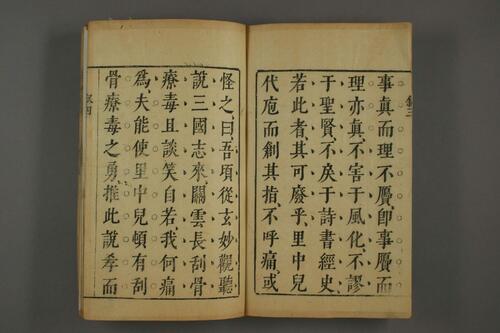 敘三
事真而理不贋即事贋而
理亦真不害于風化不謬
于聖賢不戾于詩書經史
若此者其可廢乎里中兒
代庖而創其指不呼痛或
怪之曰吾頃從玄妙觀聽
說三國志來關雲長刮骨
療毒且談笑自若我何痛
爲夫能使里中兒頓有刮
骨療毒之勇推此說孝而
敘四